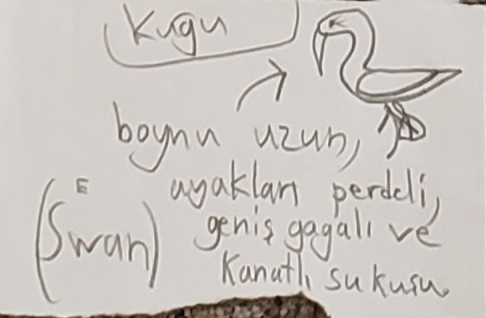 Kugu
boynu uzun,
ayakları perdeli,
E
(Swan)
geniş gagalı ve
Kanatlı su kusu